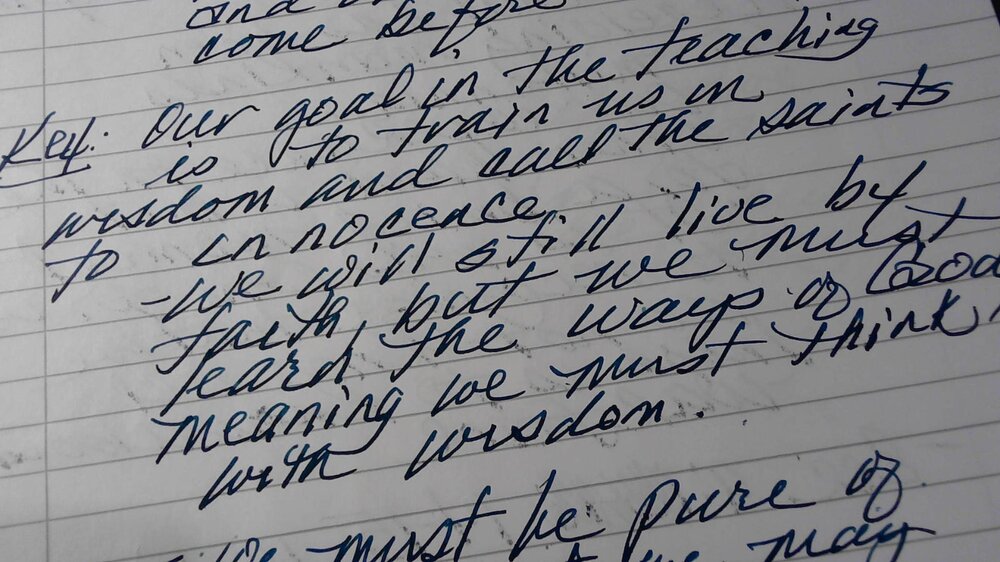 and
come before
Key: Our goal in the teaching
is to train us in
wisdom and call the saints
to innocence
- we will still live by
faith, but we must
learn the ways of God
meaning we must think
with wisdom.
we must be pure of
we may